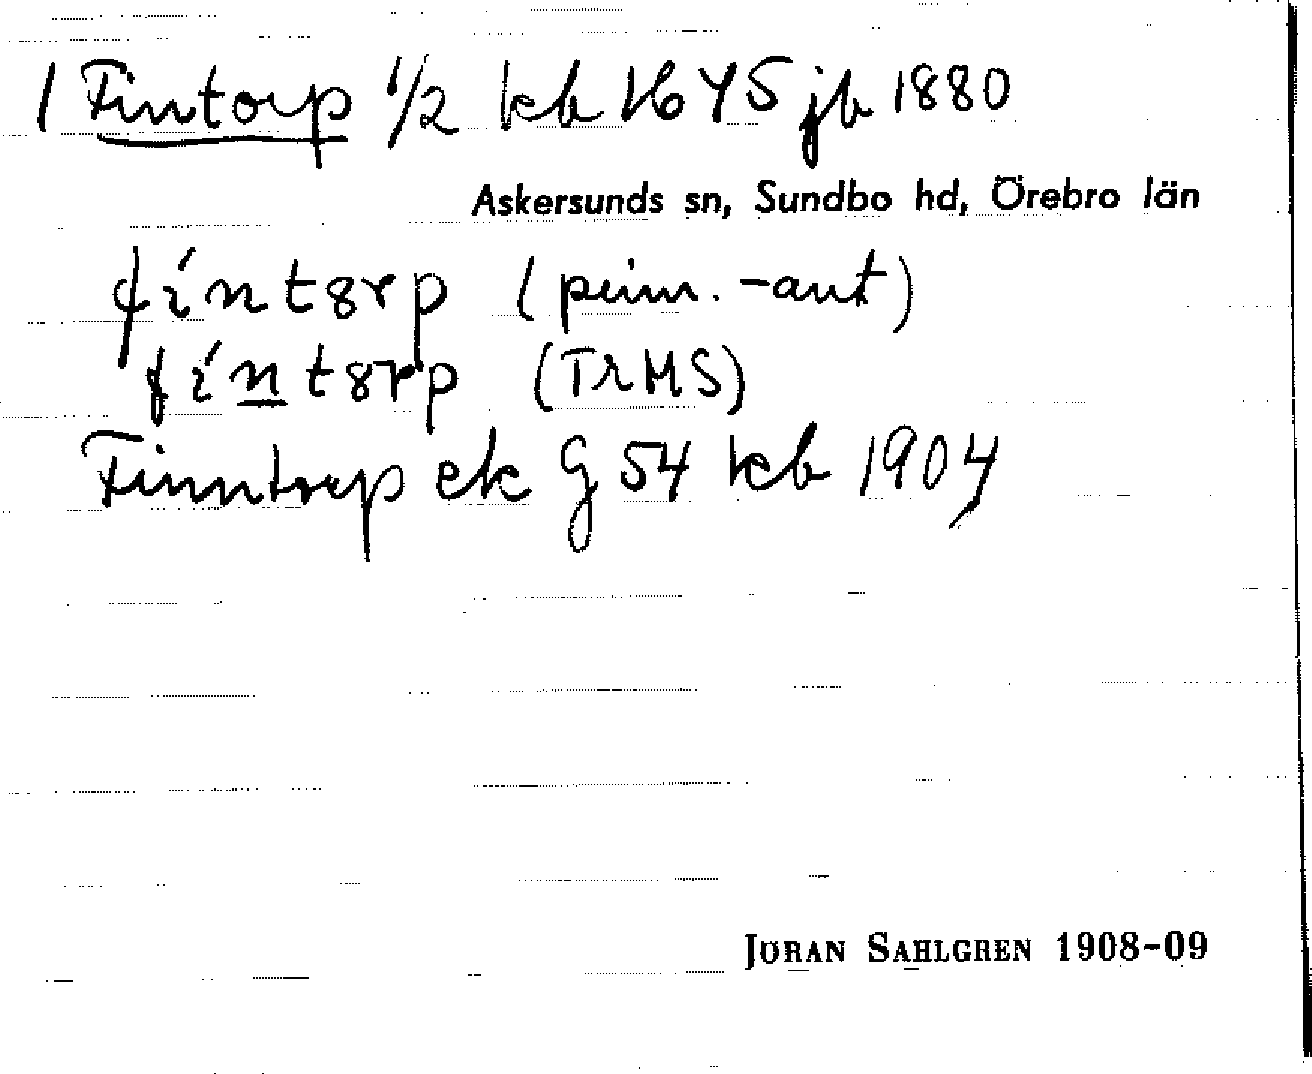 1 Fintorp 1/2 kb 1645 jb 1880
Askersunds sn, Sundbo hd, Örebro län
fíntɤrp (prim. -ant)
fíntɤrp (TrMS)
Finntorp ek G 54 kb 1904
JÖRAN SAHLGREN 1908-09